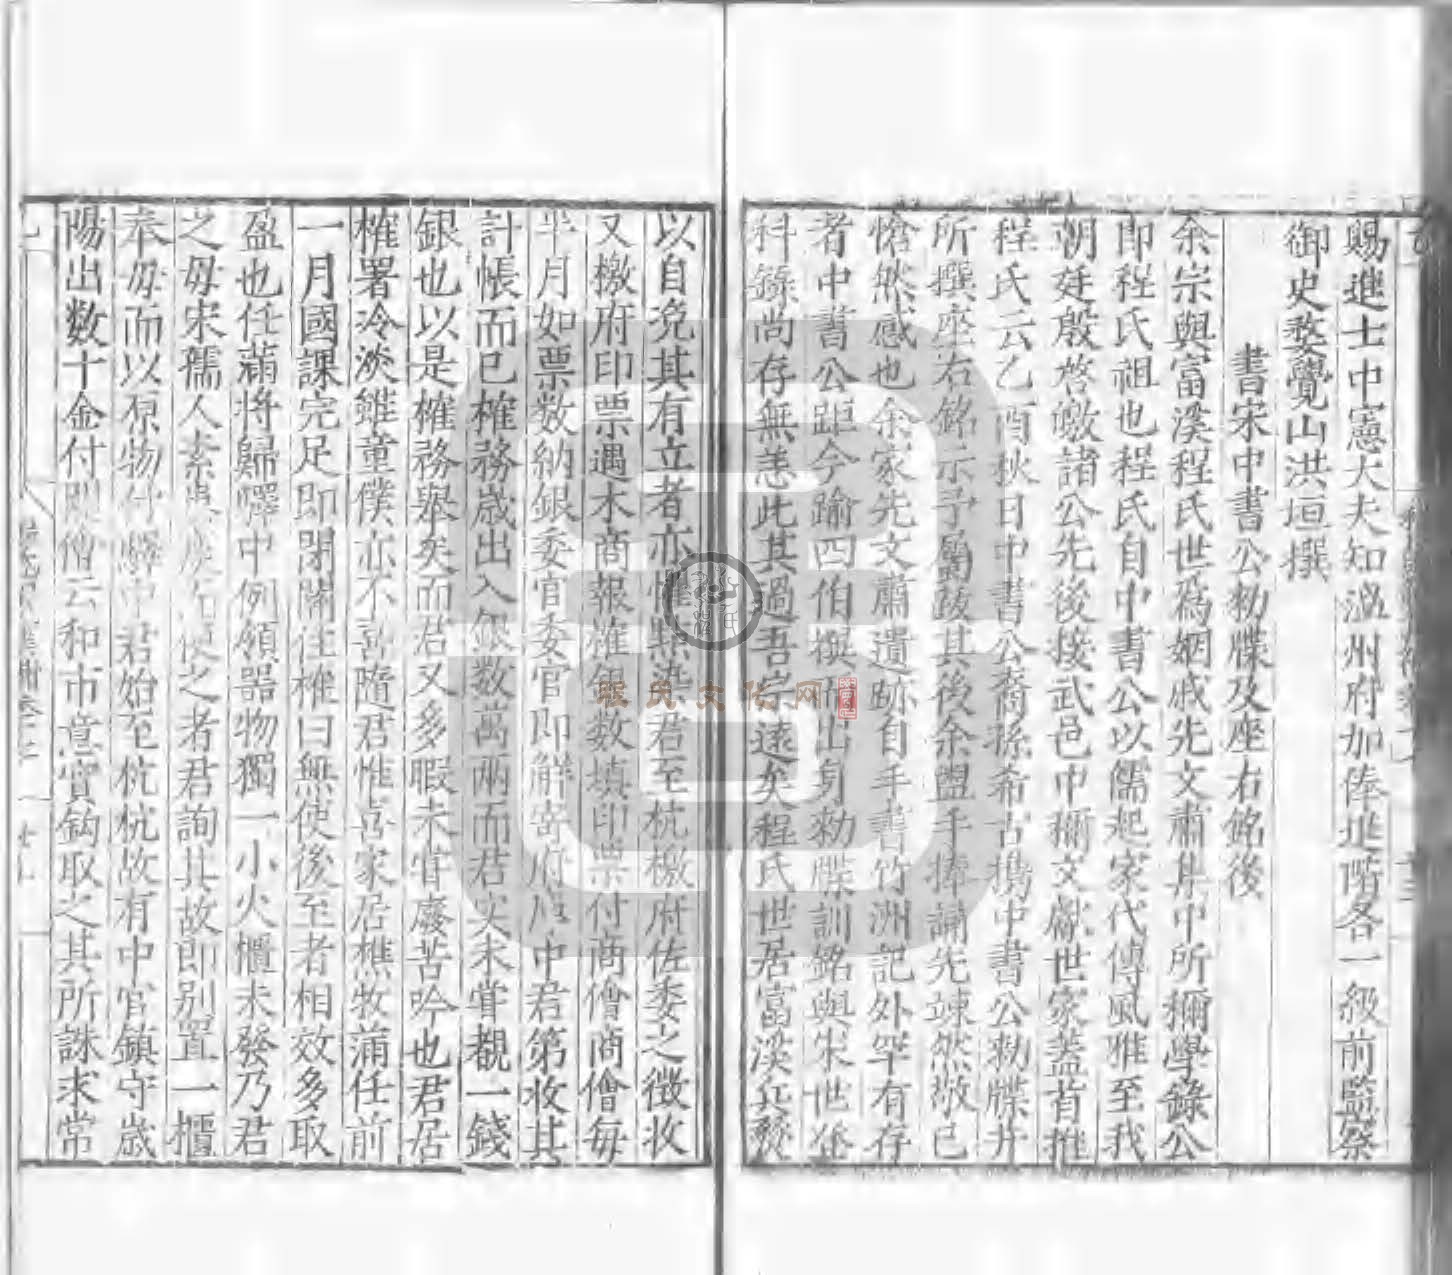 賜進士中憲大夫知溫州府加俸進階各一級前監察
御史婺覺山洪垣撰
書宋中書公勑牒及座右銘後
余宗與富溪程氏世爲姻戚先文肅集中所稱學錄公
即程氏祖也程氏自中書公以儒起家代傳風雅至我
朝廷殷啓皦諸公先後接武邑中稱文獻世家蓋首推
程氏云乙酉秋日中書公裔孫希古携中書公勑牒并
所撰座右銘示予屬跋其後余盥手捧誦先竦然敬已
愴然感也余家先文肅遺跡自手書竹洲記外罕有存
者中書公距今踰四伯撰出身勑牒訓銘與宋世
科錄尚存無恙此其過吾宗遠矣程氏世居富溪兵燹
以自免其有立者亦罹點染君至杭檄府佐委之徵收
又檄府印票遇木商報數填印票付商儈商儈每
半月如票数納銀委官委官即解寄府中君第收其
計帳而已榷務歲出入銀数萬兩而君实未甞覩一錢
銀也以是榷務舉矣而君又多暇未甞廢苦吟也君居
榷署冷淡雖童僕亦不喜隨君惟喜家居樵牧蒲任前
一月國課完足即閉關往榷曰無使後至者相效多取
盈也任蒲將歸驛中例領器物獨一小火櫃未發乃君
之毋宋孺人素之者君詢其故即别置一櫃
奉毋而以原物付驛中君始至杭杭故有中官鎮守歲
陽出数十金付儈云和市意實鈎取之其所誅求常